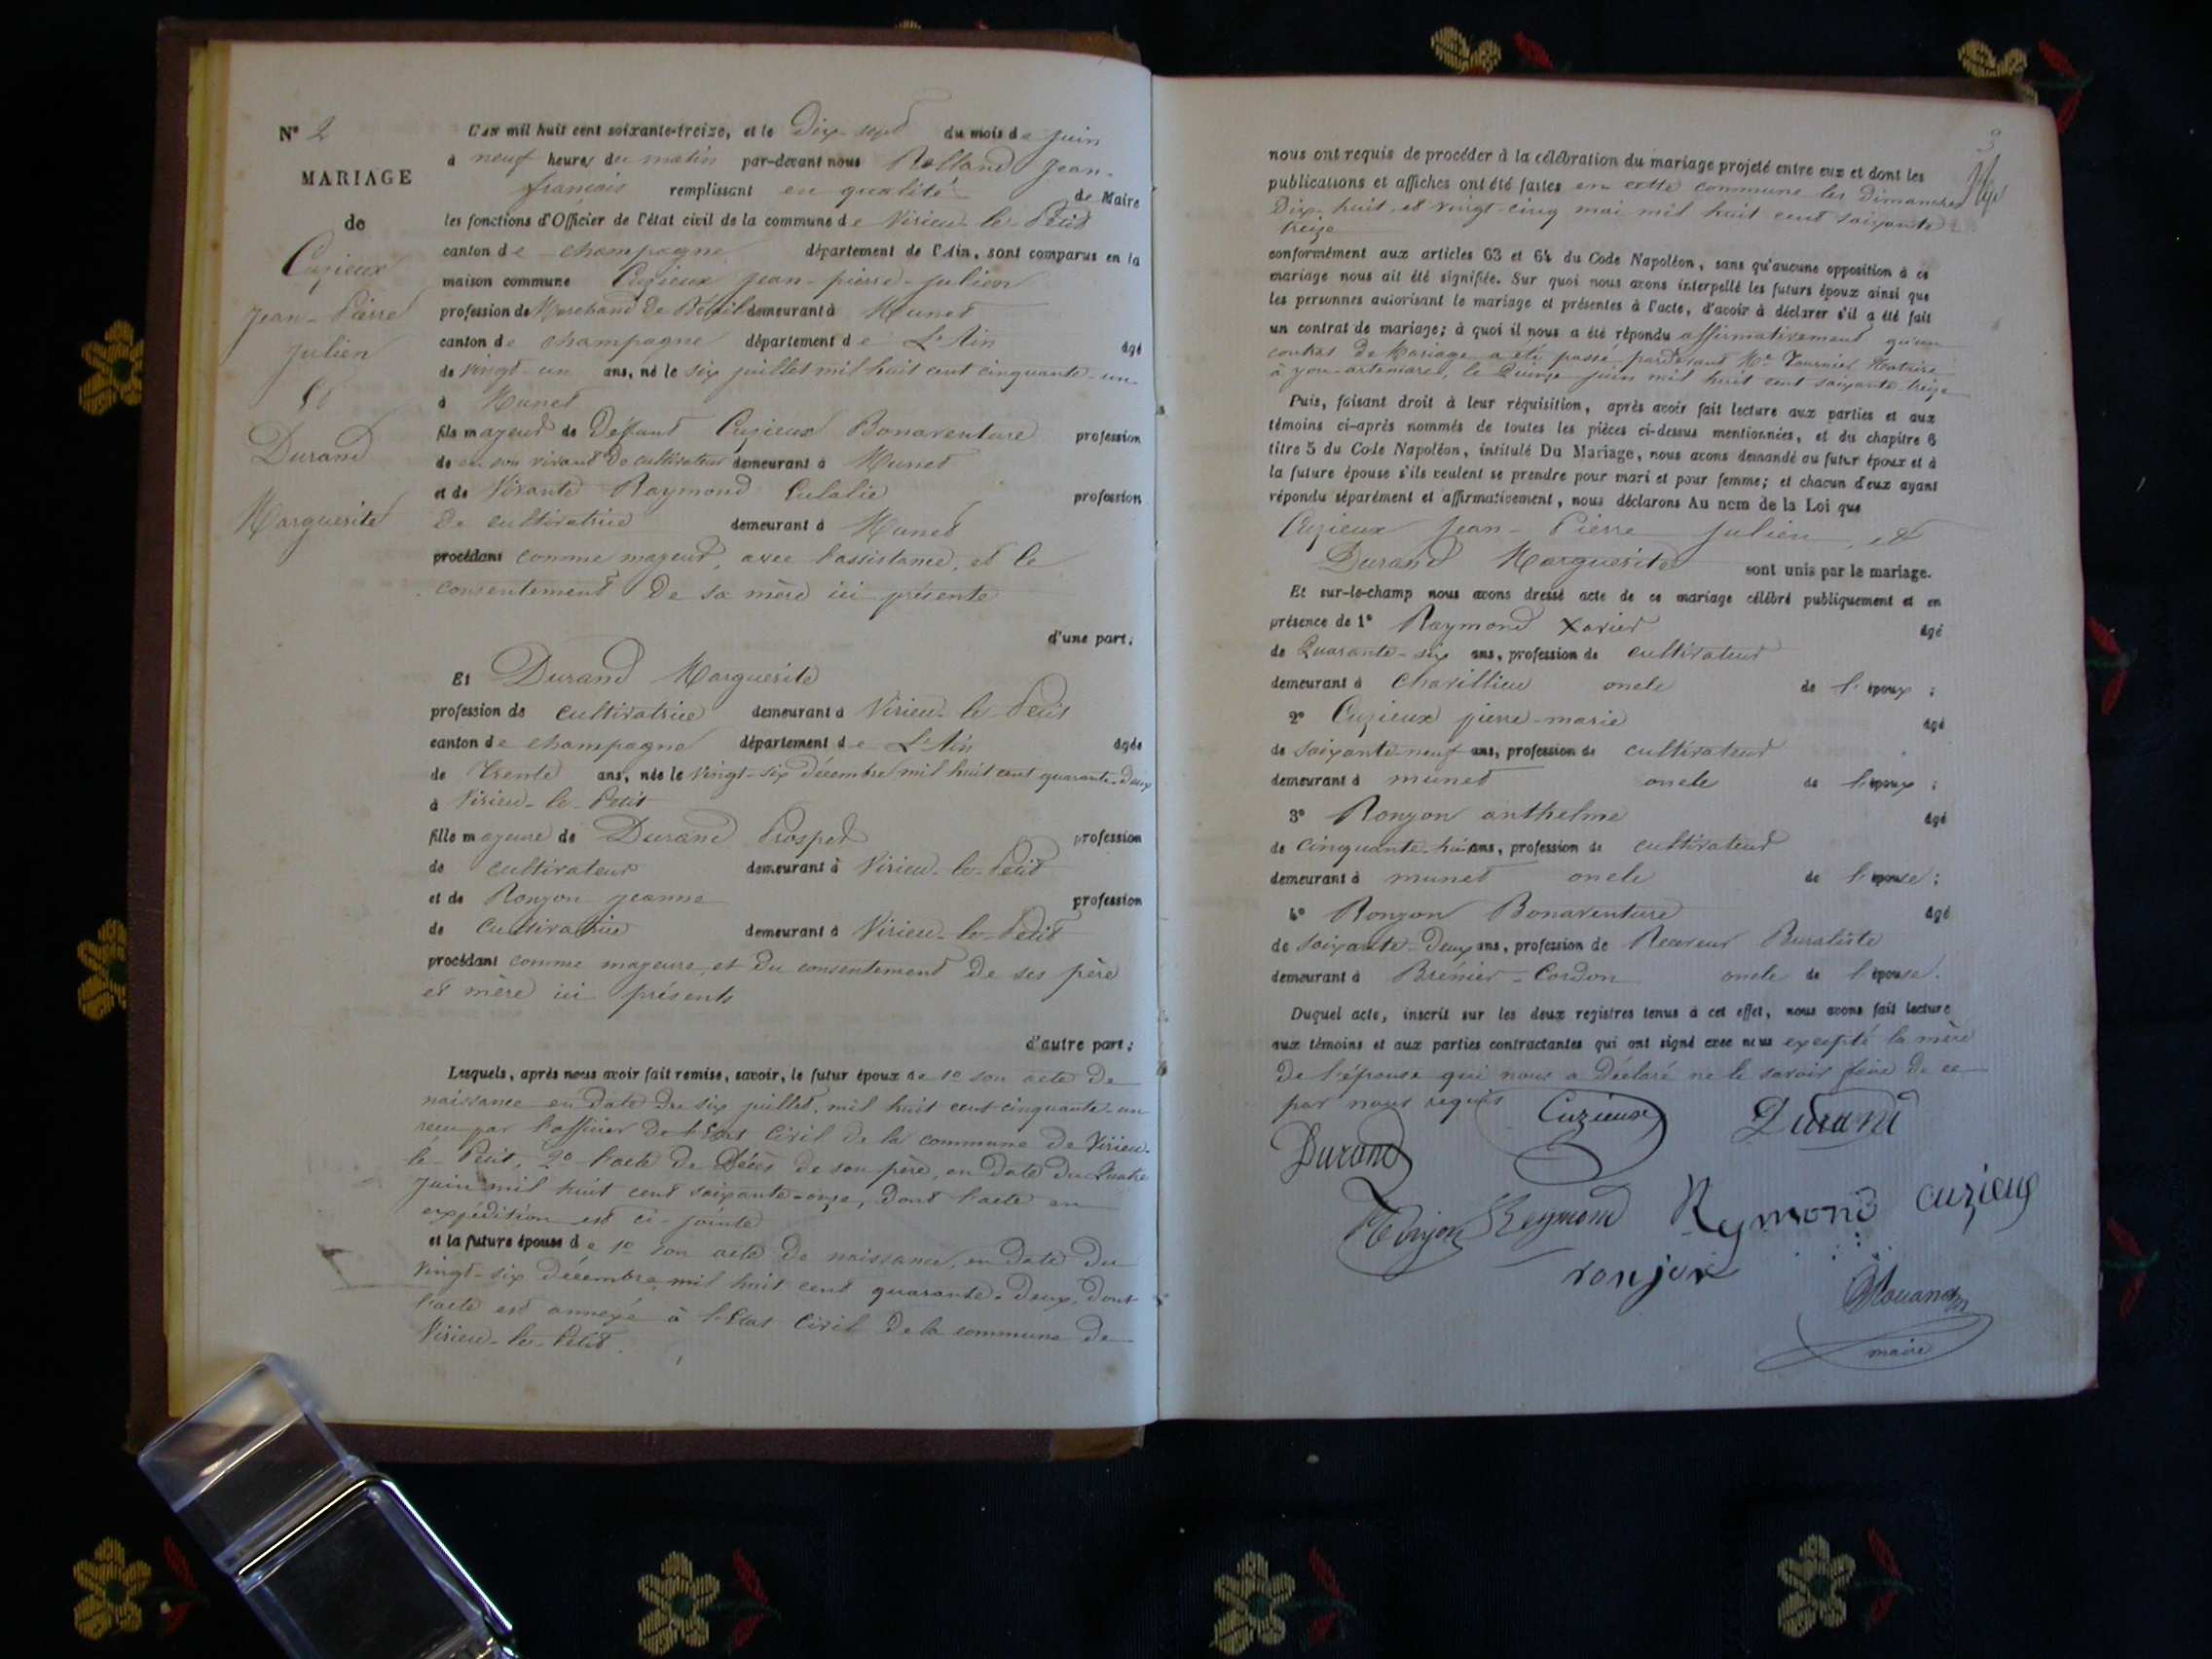 N° 2
MARIAGE
de
Cuzieux
Jean-Pierre
Julien
Et
Durand
Marguerite
L'an mil huit cent soixante-treize, et le Dix-sept du mois de juin
à neuf heures du matin par-devant nous Rolland Jean-
françois remplissant en qualité de Maire
les fonctions d'Officier de l'état civil de la commune de Virieu-le-Petit
canton de champagne département de l'Ain, sont comparus en la
maison commune Cuzieux jean-pierre-julien
profession de Marchand de Bétail demeurant à Munet
canton de champagne département de L'Ain âgé
de vingt-un ans, né le six juillet mil huit cent cinquante-un
à Munet
fils majeur de Deffunt Cuzieux Bonaventure profession
de en son vivant de cultivateur demeurant à Munet
et de Vivante Raymond Eulalie profession
De cultivatrice demeurant à Munet
procédant comme majeur, avec l'assistance, et le
consentement De sa mère ici présente
d'une part;
Et Durand Marguerite
profession de cultivatrice demeurant à Virieu-le-Petit
canton de champagne département de L'Ain âgée
de Trente ans, née le vingt-six décembre mil huit cent quarante-deux
à Virieu-le-Petit
fille majeure de Durand Prosper profession
de cultivateur demeurant à Virieu-le-Petit
et de Ronjon jeanne profession
de Cultivatrice demeurant à Virieu-le-Petit
procédant comme majeure, et du consentement de ses père
et mère ici présents
d'autre part;
Lesquels, après nous avoir fait remise, savoir, le futur époux de 1° son acte de
naissance en date du six juillet, mil huit cent cinquante-un
reçu par l'officier de l'Etat Civil de la commune de Virieu-
le-Petit, 2° l'acte de Décès de son père, en date du Quatre
juin mil huit cent soixante-onze, dont l'acte en
expédition est ci-jointe
et la future épouse de 1° son acte de naissance, en date du
vingt-six décembre mil huit cent quarante-deux, dont
l'acte est annexé à l'Etat Civil de la commune de
Virieu-le-Petit.
3
nous ont requis de procéder à la célébration du mariage projeté entre eux et dont les
publications et affiches ont été faites en cette commune les Dimanches
Dix-huit, et vingt-cinq mai mil huit cent soixante
treize
conformément aux articles 63 et 64 du Code Napoléon, sans qu'aucune opposition à ce
mariage nous ait été signifiée. Sur quoi nous avons interpellé les futurs époux ainsi que
les personnes autorisant le mariage et présentes à l'acte, d'avoir à déclarer s'il a été fait
un contrat de mariage; à quoi il nous a été répondu affirmativement qu'un
contrat de Mariage a été passé pardevant Me Tournier Notaire
à yon-artemare, le Quinze juin mil huit cent soixante treize
Puis, faisant droit à leur réquisition, après avoir fait lecture aux parties et aux
témoins ci-après nommés de toutes les pièces ci-dessus mentionnées, et du chapitre 6
titre 5 du Code Napoléon, intitulé Du Mariage, nous avons demandé au futur époux et à
la future épouse s'ils veulent se prendre pour mari et pour femme; et chacun d'eux ayant
répondu séparément et affirmativement, nous déclarons Au nom de la Loi que
Cuzieux Jean-Pierre Julien, et
Durand Marguerite sont unis par le mariage.
Et sur-le-champ nous avons dressé acte de ce mariage célébré publiquement et en
présence de 1° Raymond Xavier âgé
de Quarante-six ans, profession de cultivateur
demeurant à Charillieu oncle de l'époux;
2° Cuzieux pierre-marie âgé
de soixante neuf ans, profession de cultivateur
demeurant à munet oncle de l'époux;
3° Ronjon anthelme âgé
de cinquante-huit ans, profession de cultivateur
demeurant à munet oncle de l'épouse;
4° Ronjon Bonaventure âgé
de soixante-deux ans, profession de Receveur Buraliste
demeurant à Brénier-Cordon oncle de l'épouse.
Duquel acte, inscrit sur les deux registres tenus à cet effet, nous avons fait lecture
aux témoins et aux parties contractantes qui ont signé avec nous excepté la mère
De l'épouse qui nous a Déclaré ne le savoir faire de ce
par nous requis
Cuzieux Durand
Durand
Ronjon Reymond Reymond Cuzieux
ronjon
maire